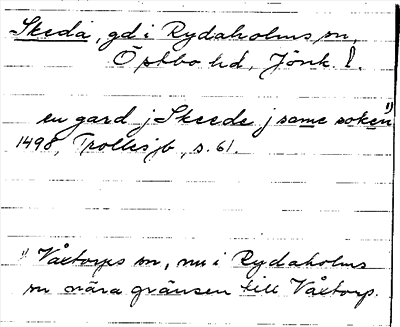 Skeda, gd i Rydaholms sn,
Östbo hd, Jönk. l.
en gard j Skeede j same soken 1)
1498, Trollesjb, s. 61.
1) Våxtorps sn, nu i Rydaholms
sn nära gränsen till Våxtorp.